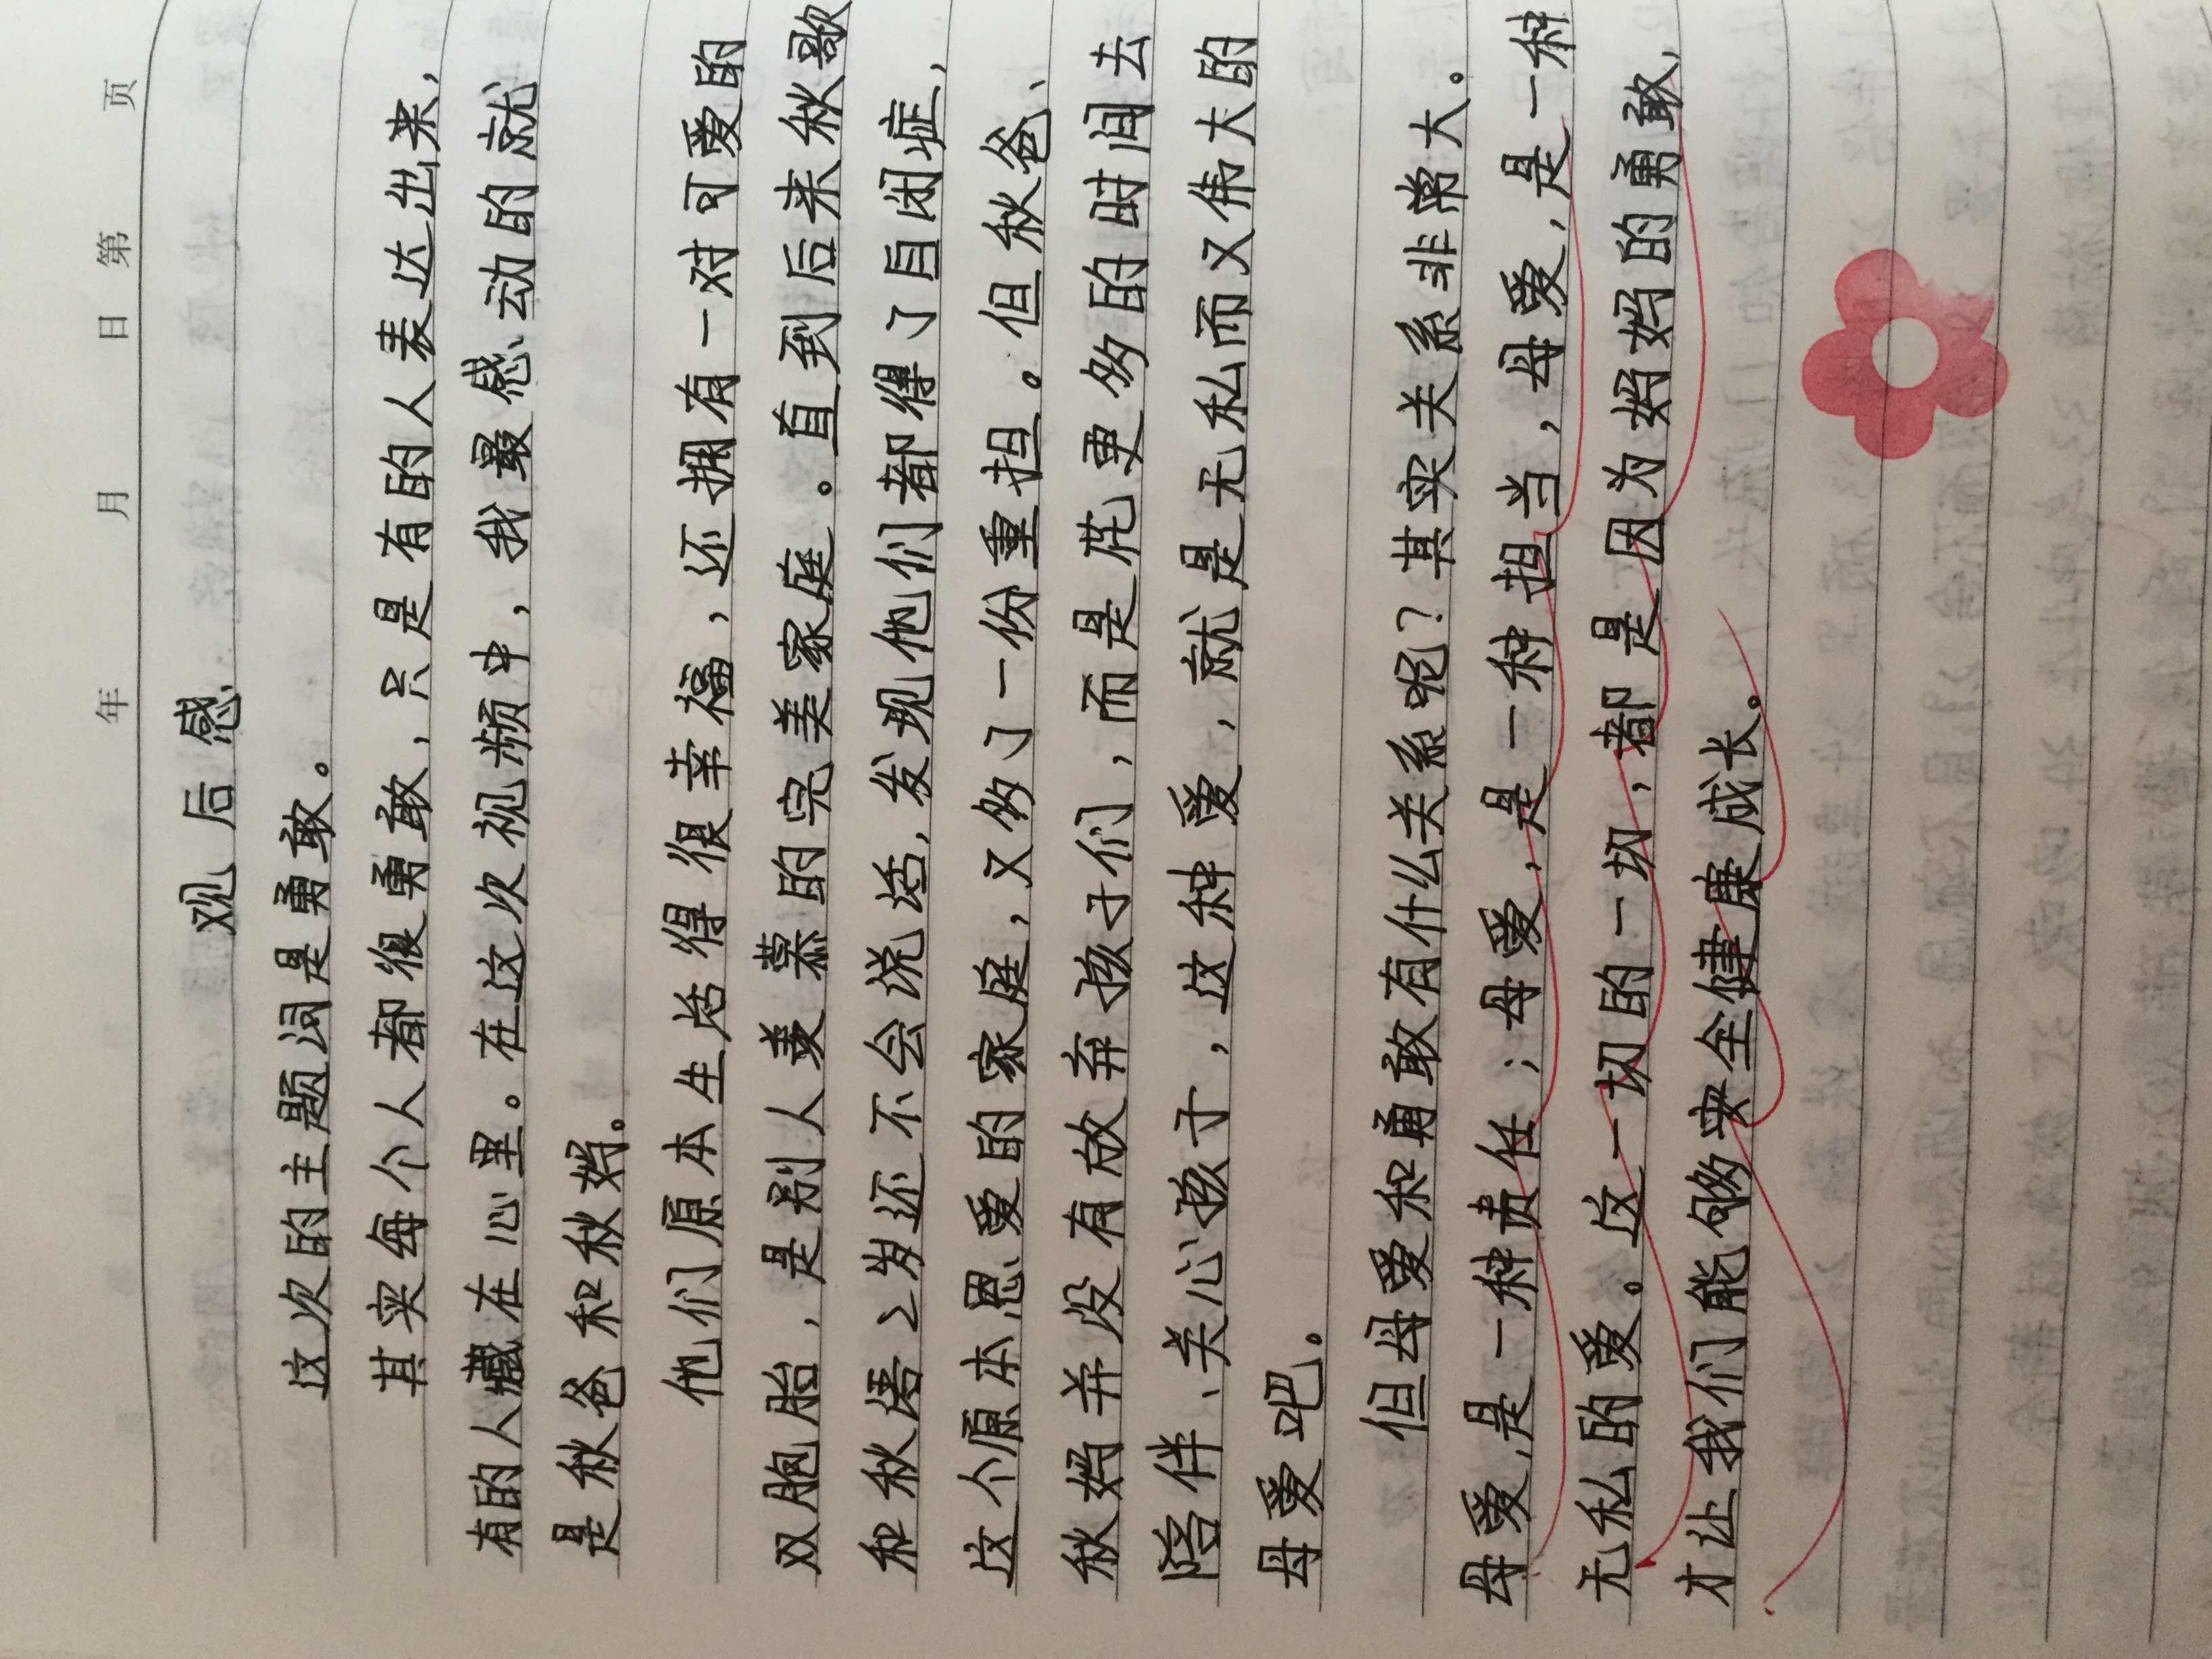 年 月 日 第 页
观后感
这次的主题词是勇敢。
其实每个人都很勇敢，只是有的人表达出来，
有的人藏在心里。在这次视频中，我最感动的就
是秋爸和秋妈。
他们原本生活得很幸福，还拥有一对可爱的
双胞胎，是别人羡慕的完美家庭。直到后来秋歌
和秋语2岁还不会说话，发现他们都得了自闭症，
这个原本恩爱的家庭，又多了一份重担。但秋爸、
秋妈并没有放弃孩子们，而是花更多的时间去
陪伴、关心孩子，这种爱，就是无私而又伟大的
母爱吧。
但母爱和勇敢有什么关系呢？其实关系非常大。
母爱，是一种责任；母爱，是一种担当，母爱，是一种
无私的爱。这一切的一切，都是因为妈妈的勇敢，
才让我们能够安全健康成长。